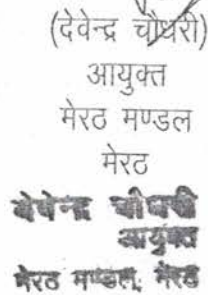 (देवेन्द्र चौधरी)
आयुक्त
मेरठ मण्डल
मेरठ
देवेन्द्र चौधरी
आयुक्त
मेरठ मण्डल, मेरठ